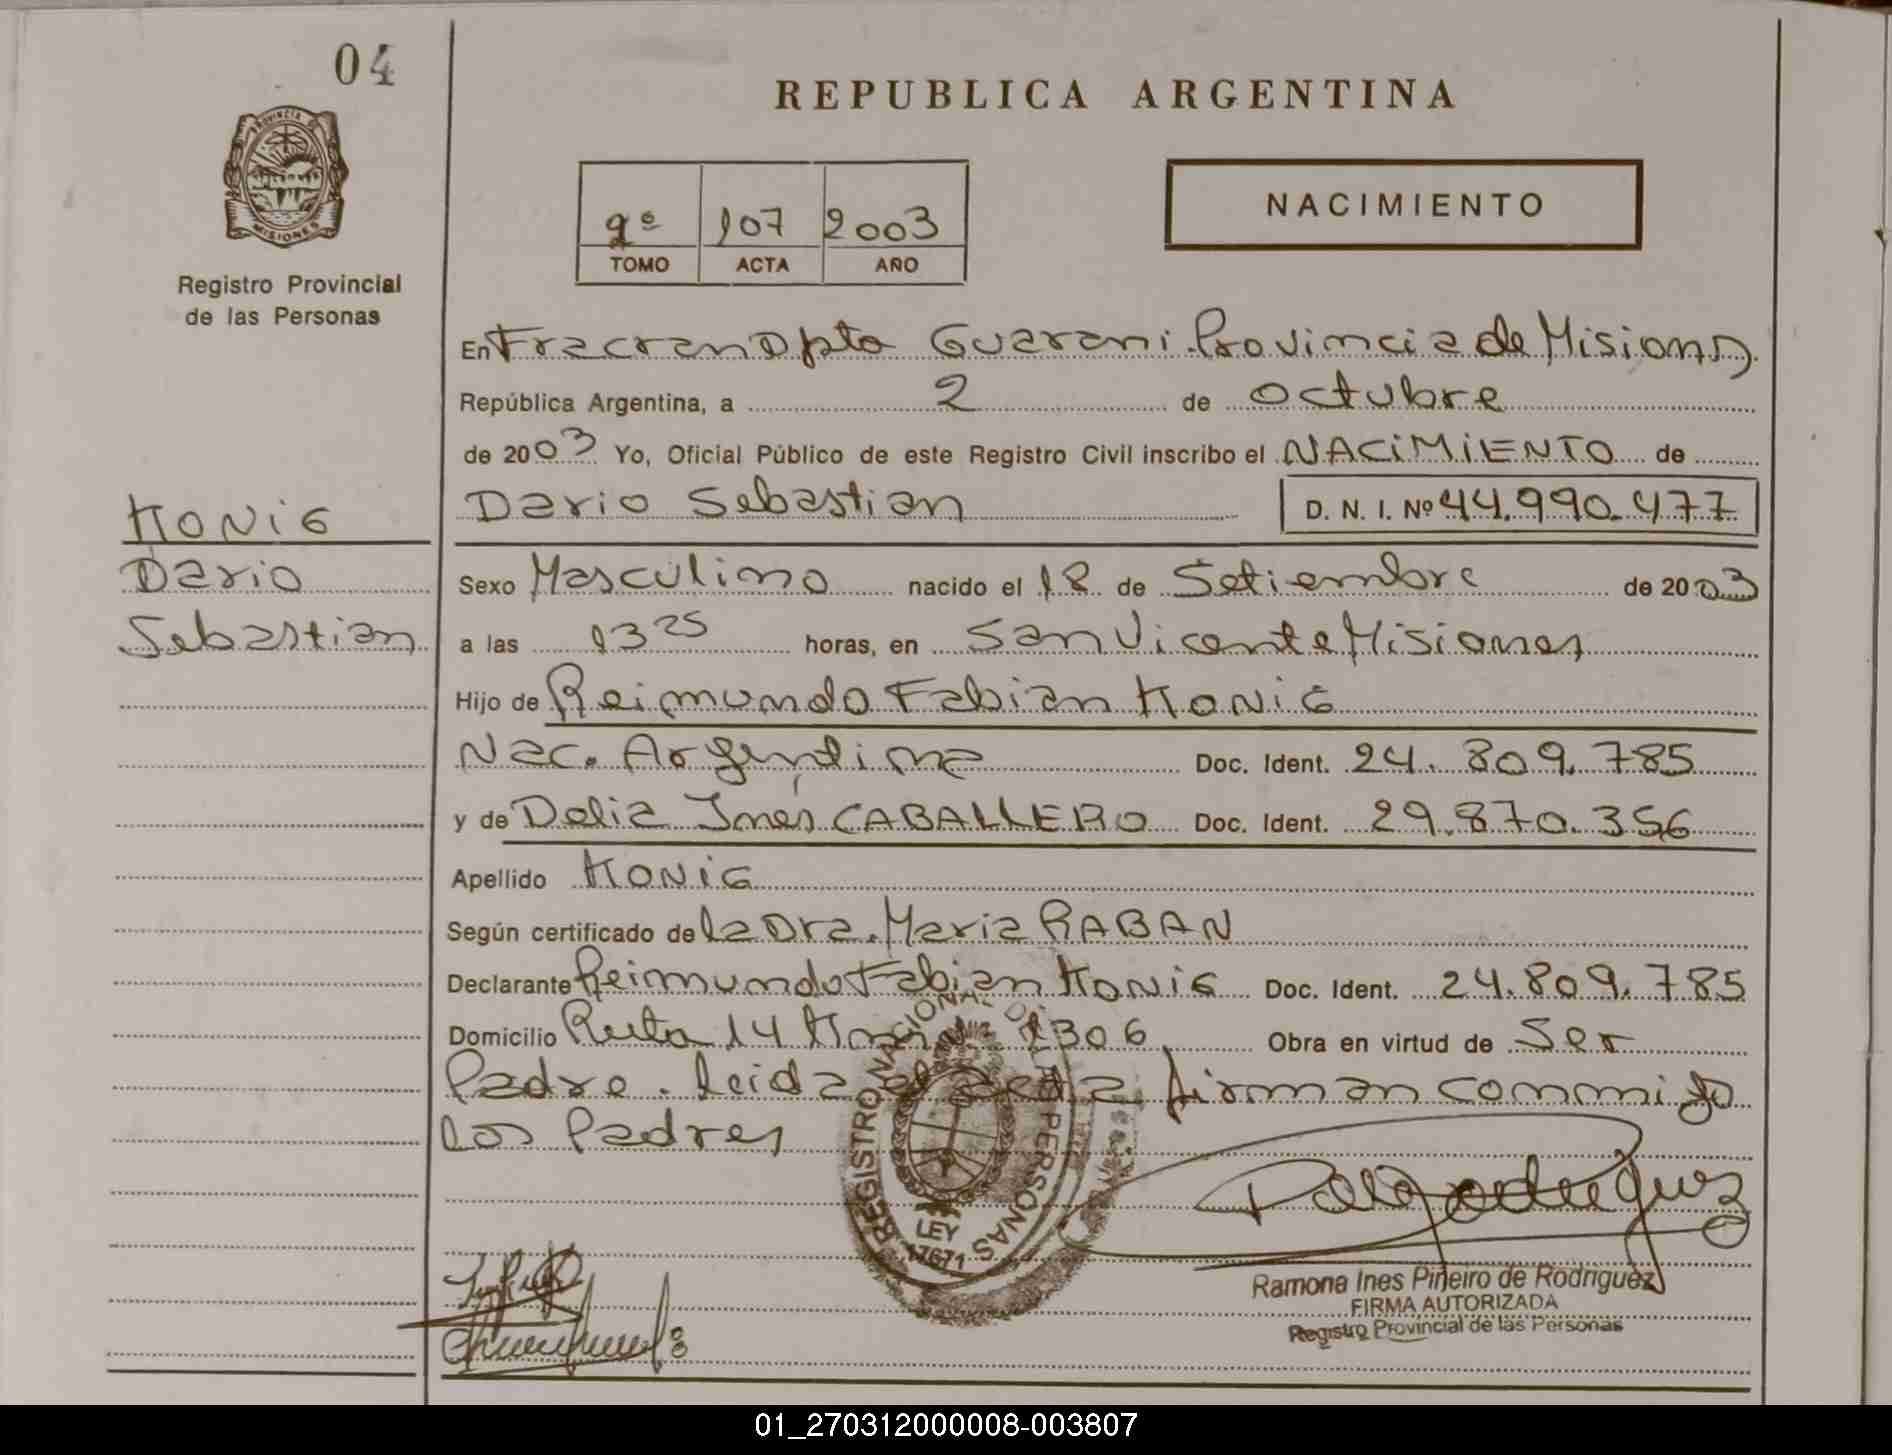 04
REPUBLICA ARGENTINA
PROVINCIA DE
MISIONES
Registro Provincial
de las Personas
9º 107 2003
TOMO ACTA AÑO
NACIMIENTO
En Fracran Dpto Guarani Provincia de Misiones
República Argentina, a 2 de octubre
de 2003 Yo, Oficial Público de este Registro Civil inscribo el NACIMIENTO de
Dario Sebastian D. N. I. Nº 44.990.477
KONIG
Dario
Sebastian
Sexo Masculino nacido el 18 de Setiembre de 2003
a las 13 25 horas, en San Vicente Misiones
Hijo de Reimundo Fabian KONIG
Nac. Argentina Doc. Ident. 24.809.785
y de Delia Ines CABALLERO Doc. Ident. 29.870.356
Apellido KONIG
Según certificado de la Dra. Maria RABAN
Declarante Reimundo Fabian KONIG Doc. Ident. 24.809.785
Domicilio Ruta 14 1306 Obra en virtud de Ser
Padre. Leida el acta firman conmigo
los Padres
REGISTRO NACIONAL DE LAS PERSONAS
LEY
17671
Ramona Ines Piñeiro de Rodriguez
FIRMA AUTORIZADA
Registro Provincial de las Personas
01_270312000008-003807